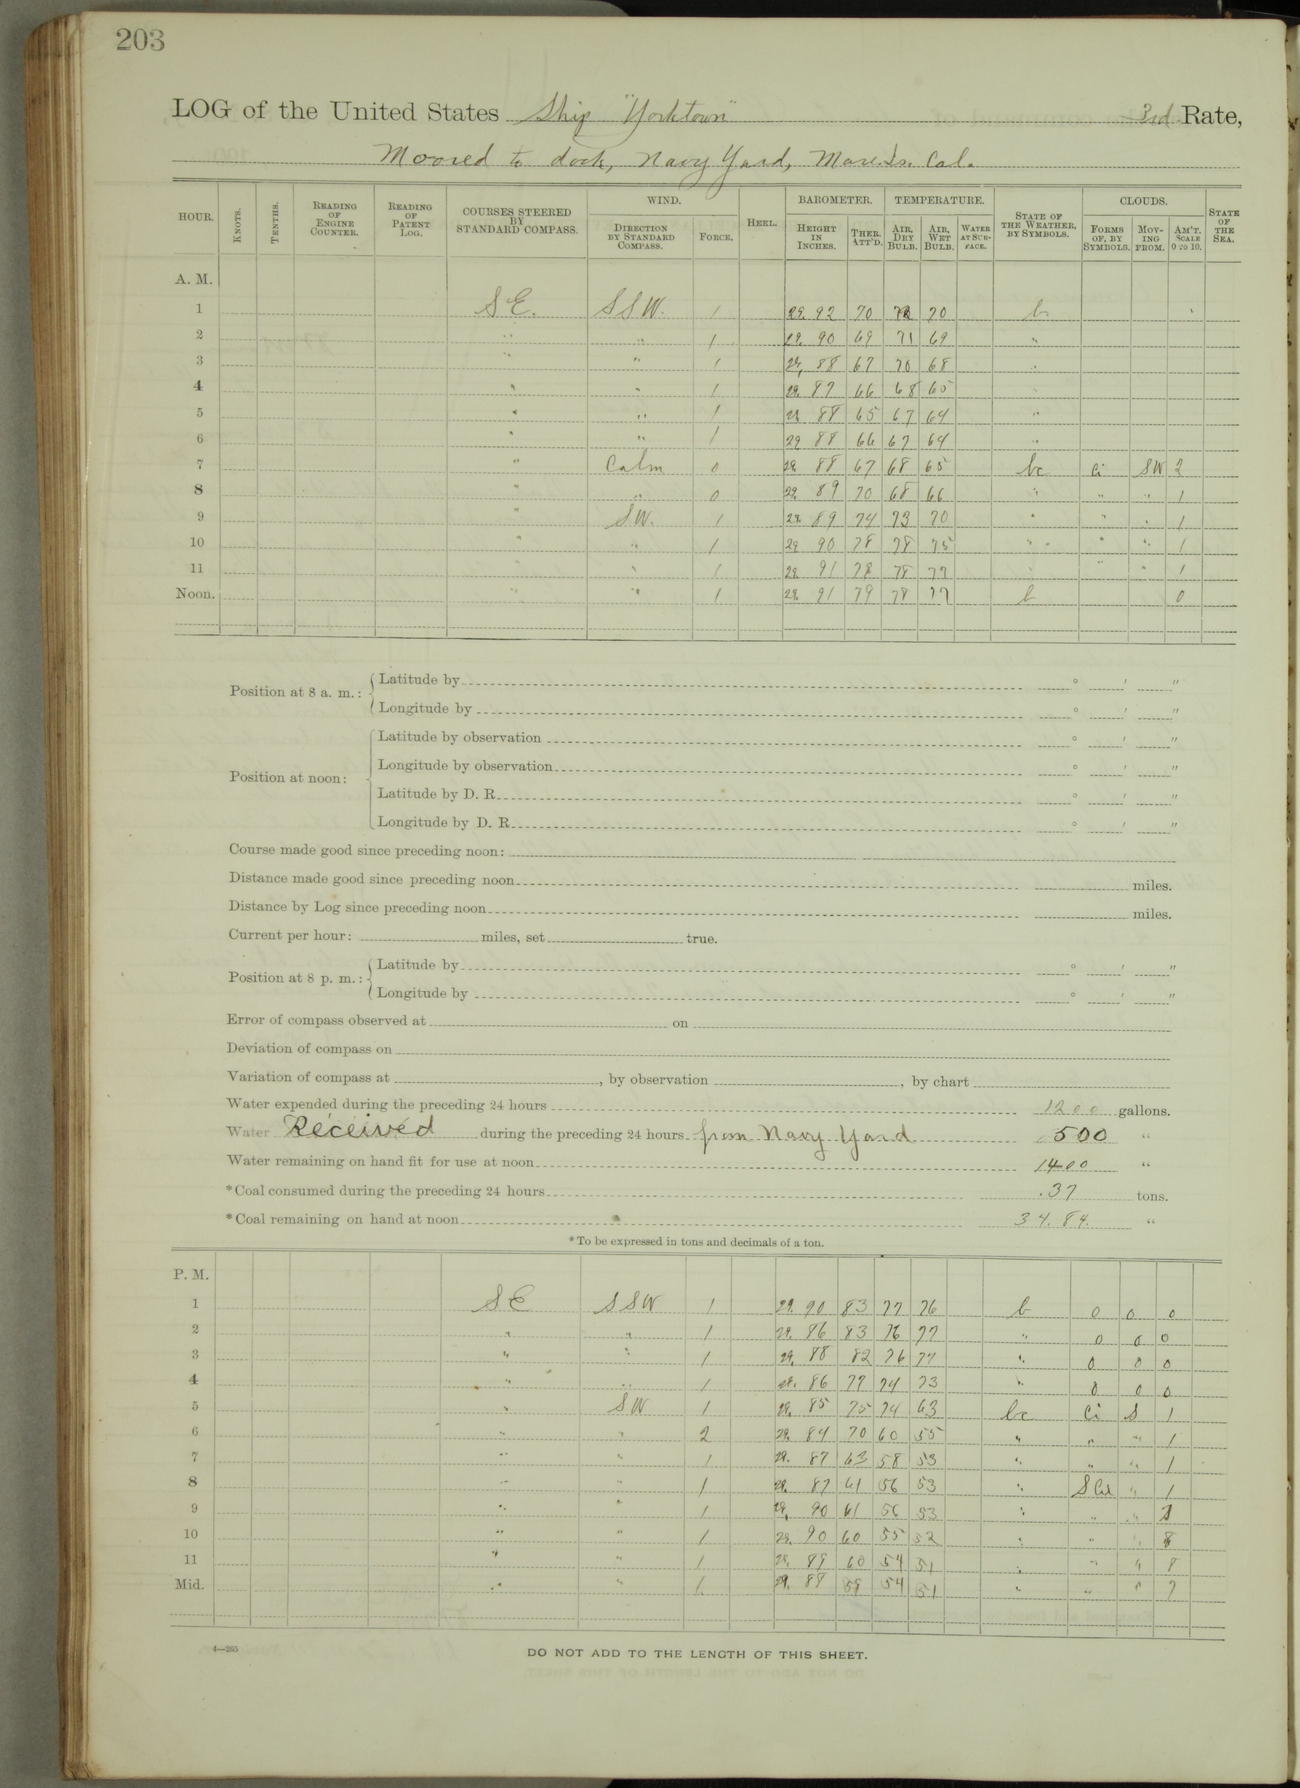 203
LOG of the United States Ship "Yorktown" 3rd Rate,
Moored to dock, Navy Yard, Mare Is. Cal.
HOUR. KNOTS. TENTHS. READING OF ENGINE COUNTER. READING OF PATENT LOG. COURSES STEERED BY STANDARD COMPASS. WIND. DIRECTION BY STANDARD COMPASS. FORCE. HEEL. BAROMETER. HEIGHT IN INCHES. THER. ATT'D. TEMPERATURE. AIR, DRY BULB. AIR, WET BULB. WATER AT SURFACE. STATE OF THE WEATHER, BY SYMBOLS. CLOUDS. FORMS OF, BY SYMBOLS. MOVING FROM. AM'T. SCALE 0 TO 10. STATE OF THE SEA.
A. M.
1 S E. SSW. 1 29.92 70 72 70 b
2 " " 1 29.90 69 71 69 "
3 " " 1 29.88 67 70 68 "
4 " " 1 29.87 66 68 65
5 " " 1 29 88 65 67 64 "
6 " " 1 29 88 66 67 64 "
7 " Calm 0 29. 88 67 68 65 bc Ci SW 2
8 " " 0 29. 89 70 68 66 " " " 1
9 " SW. 1 29. 89 74 73 70 " " " 1
10 " " 1 29 90 78 78 75 " " " " 1
11 " 1 29. 91 78 78 77 " " 1
Noon. " " 1 29. 91 79 78 77 b 0
Position at 8 a. m.: Latitude by ° ′ ″
Longitude by ° ′ ″
Position at noon: Latitude by observation ° ′ ″
Longitude by observation ° ′ ″
Latitude by D. R. ° ′ ″
Longitude by D. R. ° ′ ″
Course made good since preceding noon:
Distance made good since preceding noon miles.
Distance by Log since preceding noon miles.
Current per hour: miles, set true.
Position at 8 p. m.: Latitude by ° ′ ″
Longitude by ° ′ ″
Error of compass observed at on
Deviation of compass on
Variation of compass at , by observation , by chart
Water expended during the preceding 24 hours 1200 gallons.
Water Received during the preceding 24 hours from Navy Yard 500 "
Water remaining on hand fit for use at noon 1400 "
*Coal consumed during the preceding 24 hours .37 tons.
*Coal remaining on hand at noon 34.84. "
*To be expressed in tons and decimals of a ton.
P. M.
1 S E SSW 1 29. 90 83 77 76 b 0 0 0
2 " " 1 29. 86 83 76 77 " 0 0 0
3 " " 1 29. 88 82 76 77 " 0 0 0
4 " " 1 29. 86 77 74 73 " 0 0 0
5 " SW 1 29. 85 75 74 63 bc Ci S 1
6 " " 2 29. 84 70 60 55 " " " 1
7 " " 1 29. 87 63 58 53 " " " 1
8 " " 1 29. 87 61 56 53 " S Cu " 1
9 " " 1 29. 90 61 56 53 " " "
10 " " 1 29. 90 60 55 52 " " " 8
11 " " 1 29. 89 60 54 51 " " " 8
Mid. " " 1. 29. 88 59 54 51 " " " 7
4—265
DO NOT ADD TO THE LENGTH OF THIS SHEET.